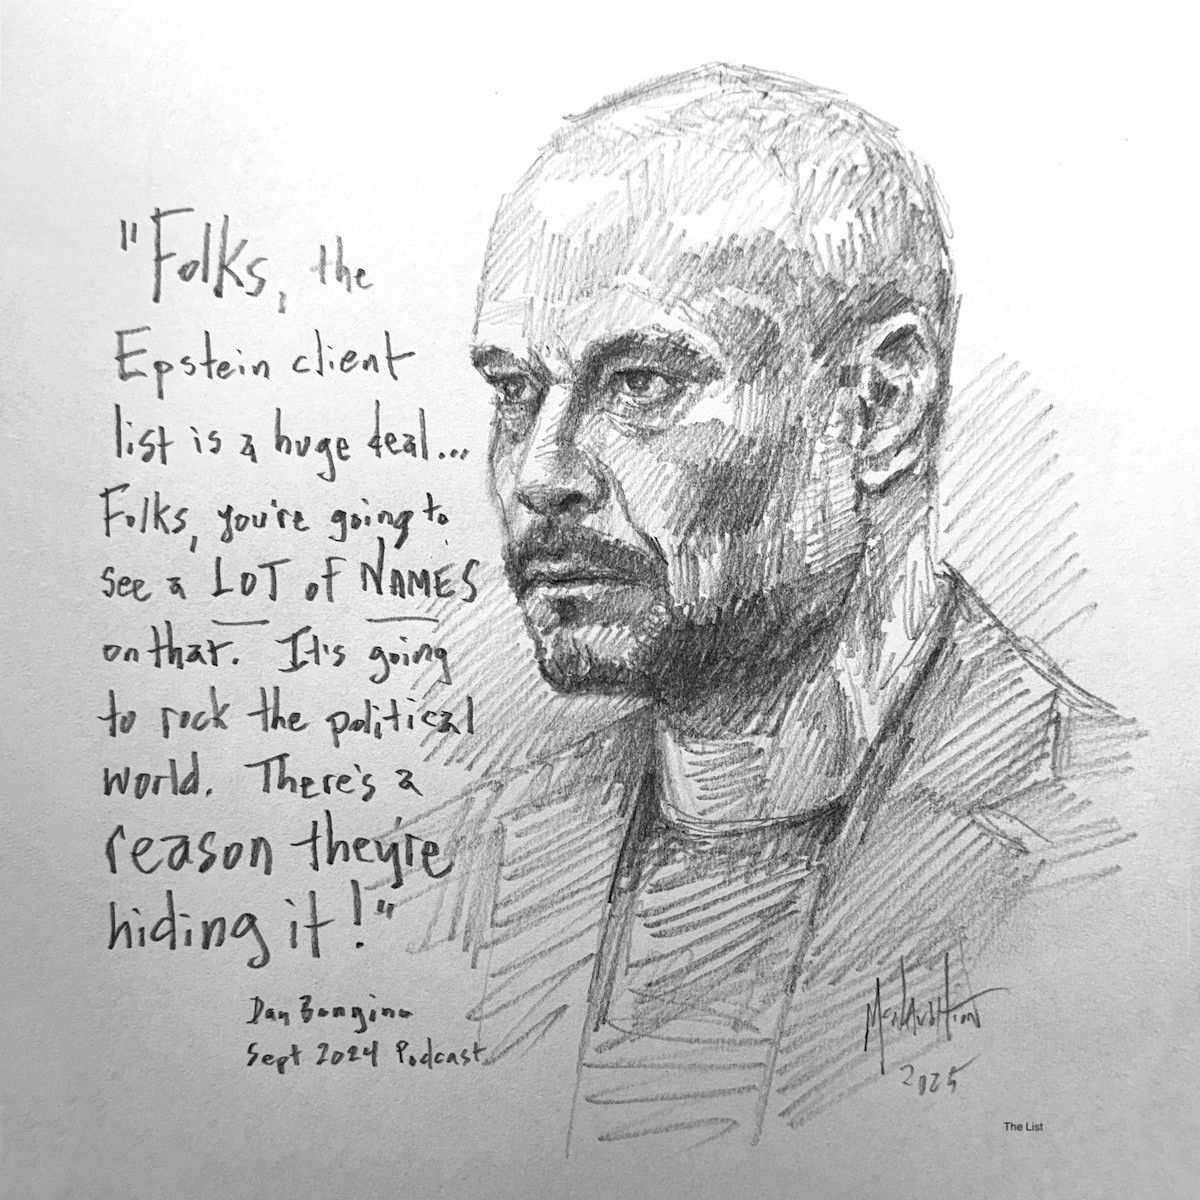 "Folks, the
Epstein client
list is a huge deal...
Folks, you're going to
see a LOT of NAMES
on that. It's going
to rock the political
world. There's a
reason they're
hiding it!"
Dan Bongino
Sept 2024 Podcast
2025
The List